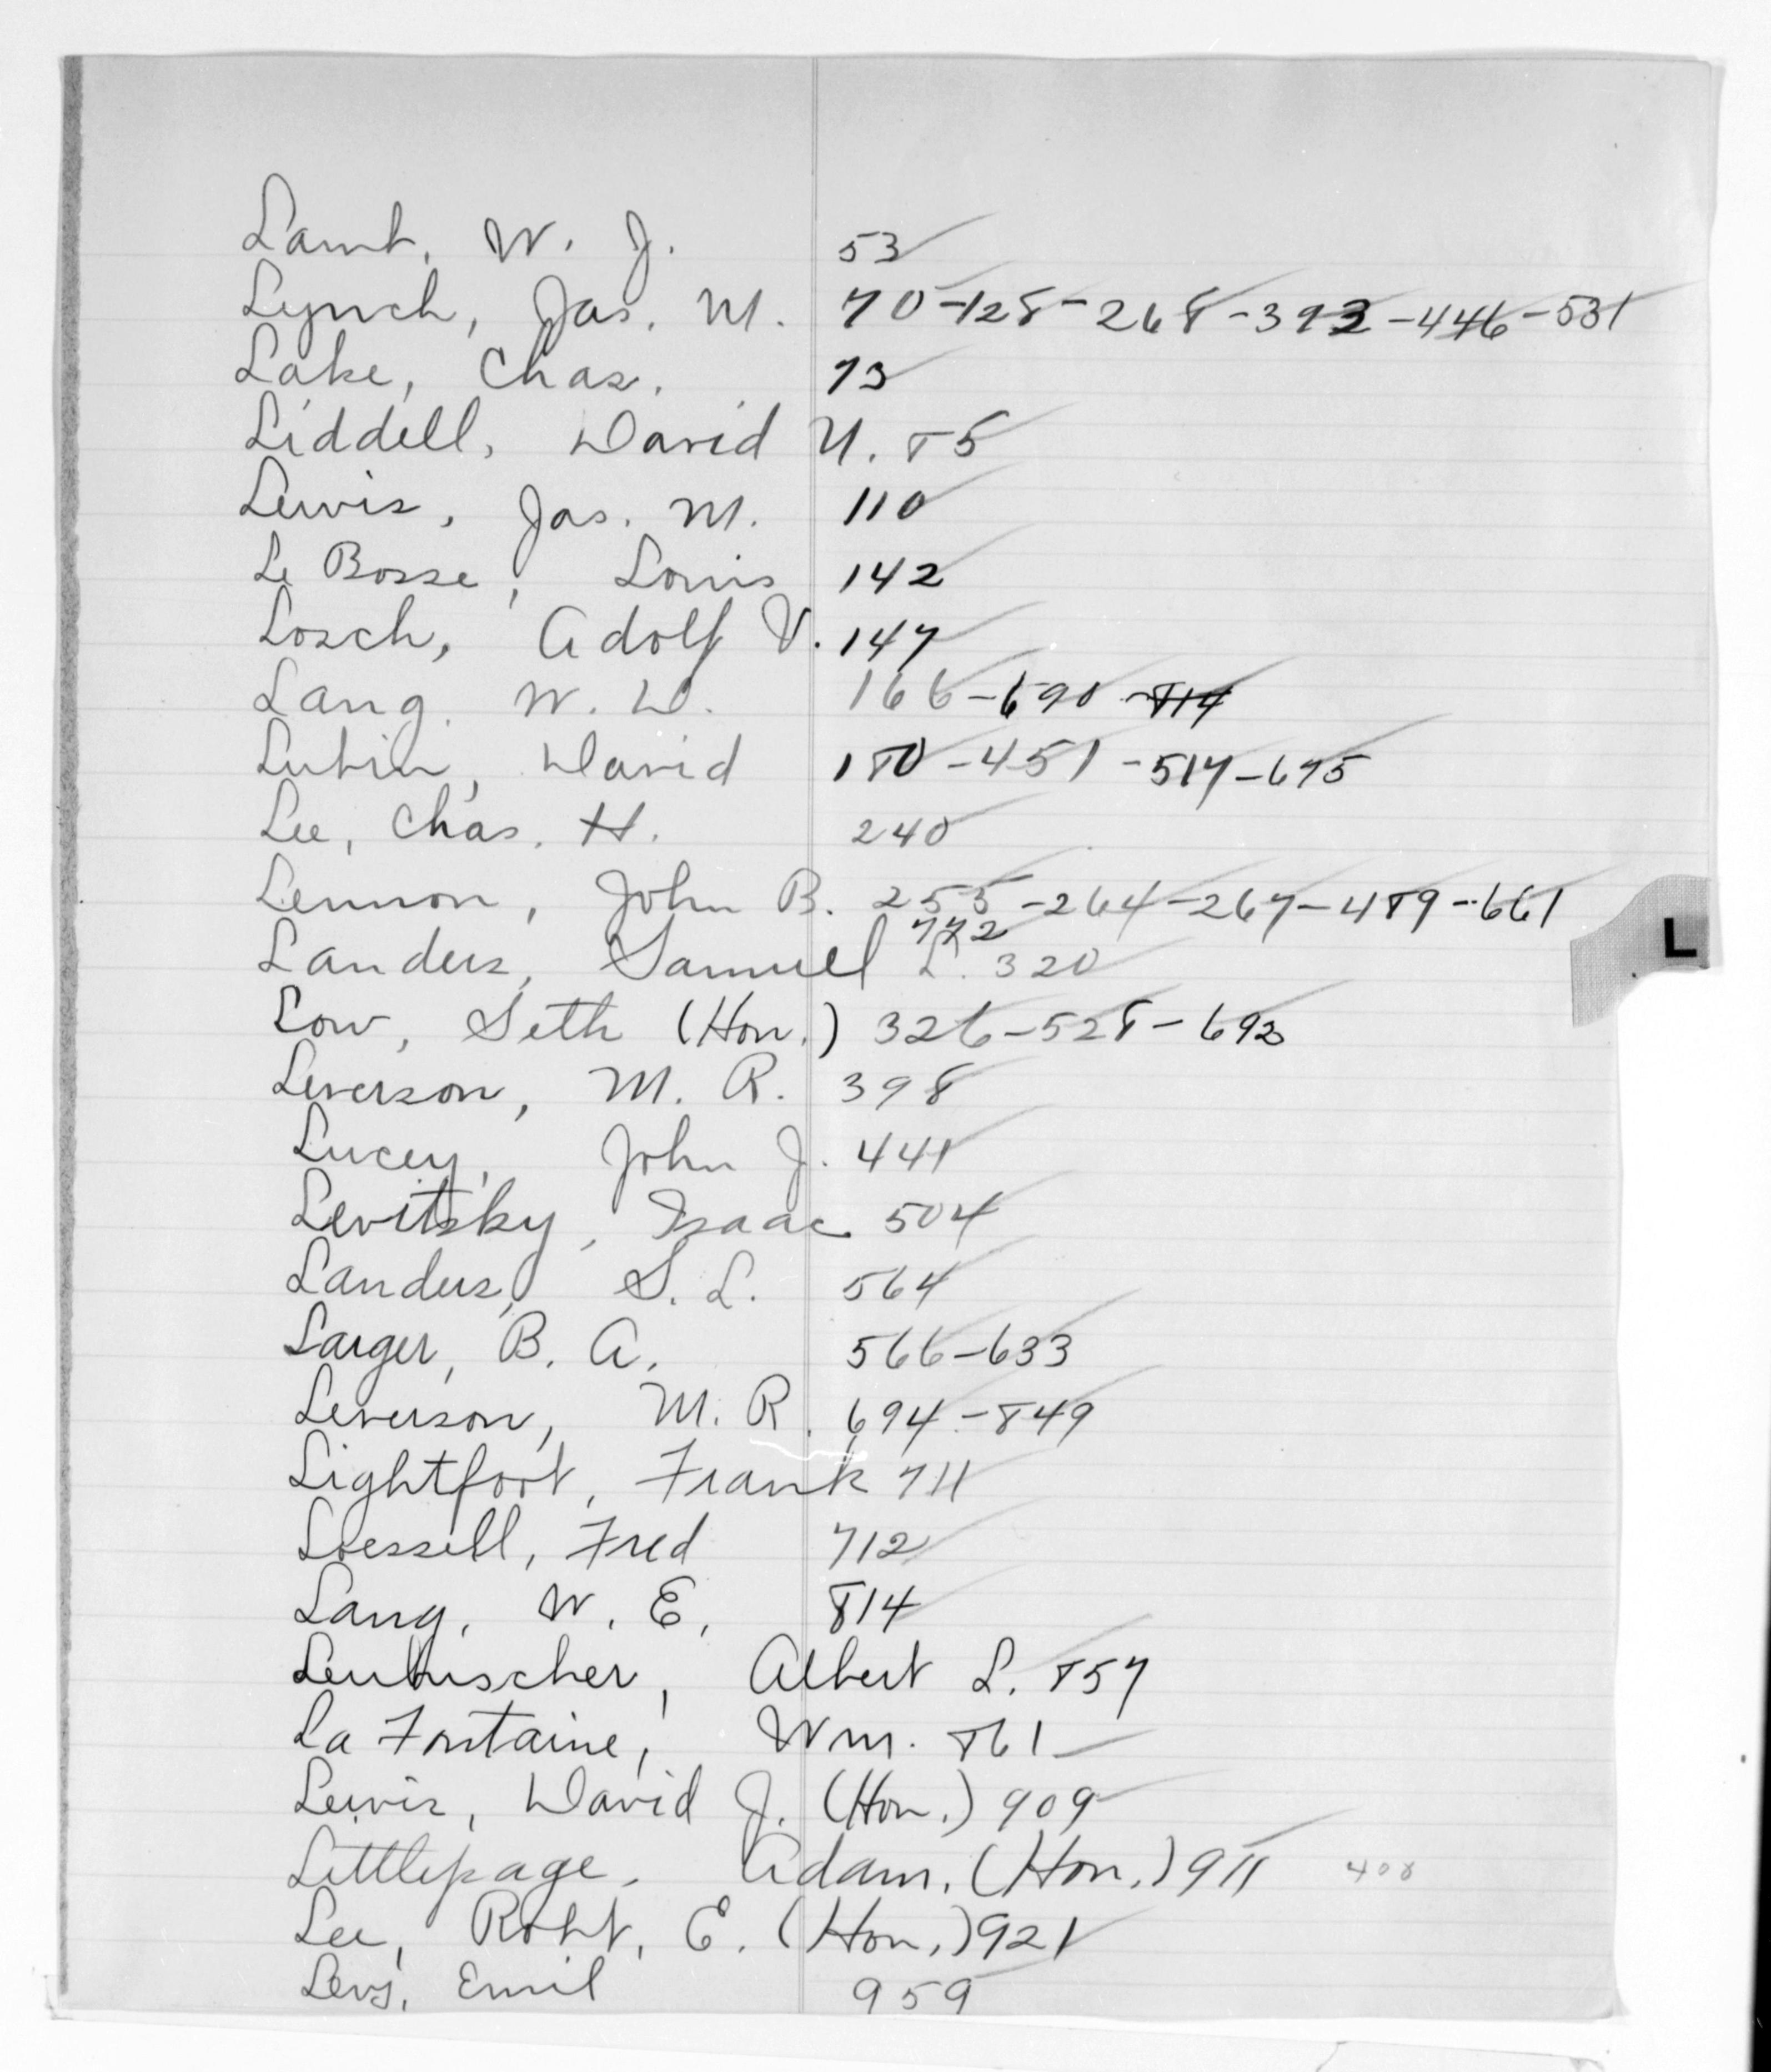 Lamb, W. J. 53
Lynch, Jas. M. 70-128-268-393-446-531
Lake, Chas. 73
Liddell, David U. 85
Lewis, Jas. M. 110
Le Bosse, Louis 142
Losch, Adolf V. 147
Lang, W. W. 166-690-814
Lubin, David 180-451-517-675
Lee, Chas. H. 240
Lennon, John B. 255-264-267-489-661
772
Landers, Samuel L. 320
Low, Seth (Hon.) 326-528-692
Leverson, M. R. 398
Lucey, John J. 441
Levitsky, Isaac 504
Landers, S. L. 564
Larger, B. A. 566-633
Leverson, M. R. 694-849
Lightfoot, Frank 711
Loessell, Fred 712
Lang, W. E. 814
Leubuscher, Albert L. 857
La Fontaine, Wm. 861
Lewis, David J. (Hon.) 909
Littlepage, Adam, (Hon.) 911 408
Lee, Robt, E. (Hon.) 921
Levy, Emil 959
L